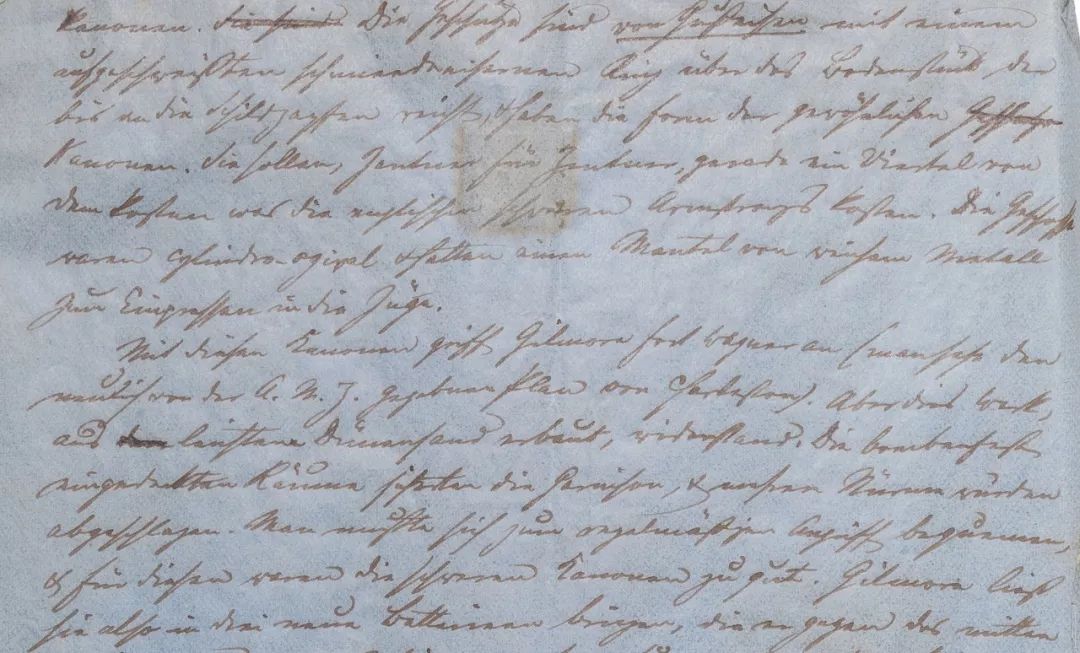 Kanonen. Sie sind Die Geschütze sind von Gußeisen mit einem
aufgeschweißten schmiedeeisernen Ring über das Bodenstück der
bis an die Schildzapfen reicht, & haben die Form der gewöhnlichen
Kanonen. Sie sollen, Zentner für Zentner, gerade ein Viertel von
dem kosten was die englischen schweren Armstrongs kosten. Die Geschosse
waren cylindro-ogival & hatten einen Mantel von weichem Metall
zum Einpressen in die Züge.
Mit diesen Kanonen griff Gilmore Fort Wagner an (man sehe den
neulich von der A. M. Z. gegebenen Plan von Charleston). Aber dies Werk,
aus leichtem Dünensand erbaut, widerstand. Die bombenfest
eingedeckten Räume sicherten die Garnison, & mehrere Stürme wurden
abgeschlagen. Man mußte sich zum regelmäßigen Angriff bequemen,
& für diesen waren die schweren Kanonen zu gut. Gilmore ließ
sie also in drei neue Batterien bringen, die er gegen das mitten